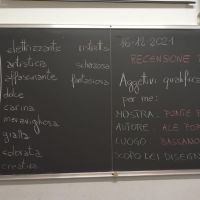 elettrizzante
artistica
affascinante
dolce
carina
meravigliosa
gialla
colorata
creativa
artista
scherzosa
fantasiosa
16-12-2021
RECENSIONE
Aggettivi qualifica
per me:
MOSTRA: PONTE
AUTORE: ALE
LUOGO: BASSANO
SCOPO DEI DISEGN